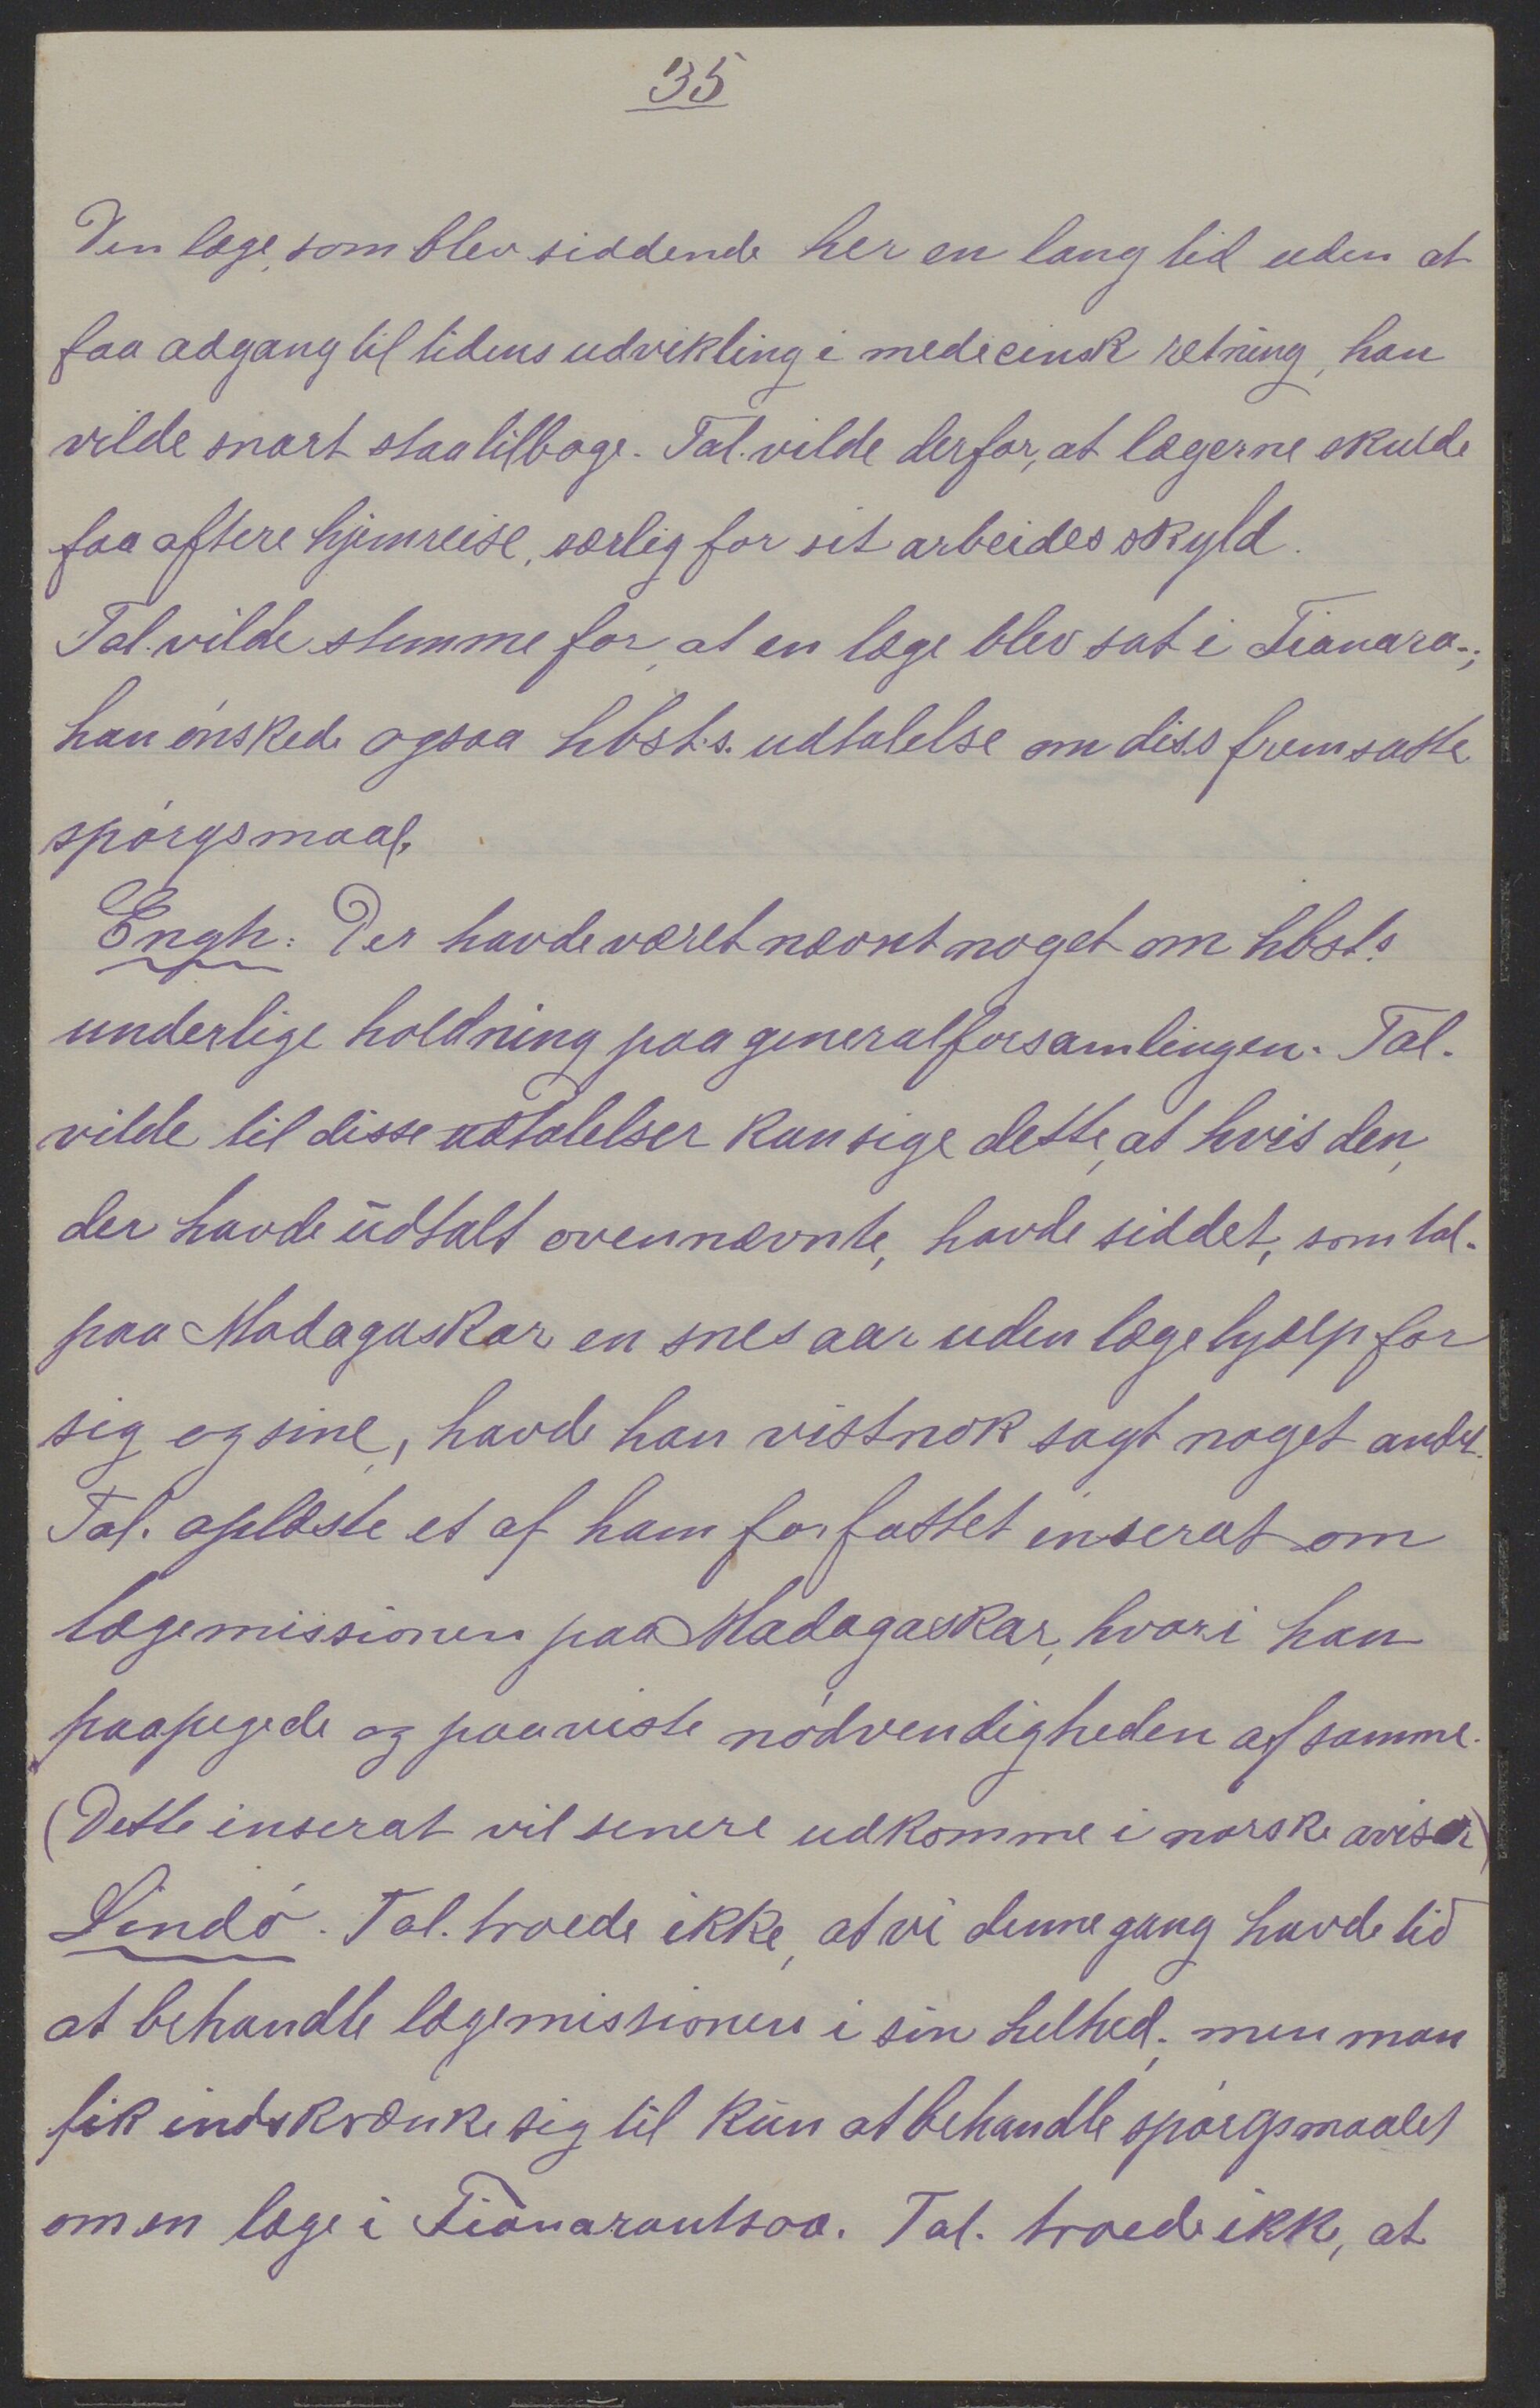 35
Den læge, som blev siddende her en lang tid uden at
faa adgang til tidens udvikling i medicinsk retning, han
vilde snart staa tilbage. Tal. vilde derfor, at lægerne skulde
faa oftere hjemreise, særlig for sit arbeides skyld.
Tal. vilde stemme for, at en læge blev sat i Fianara-;
han ønskede ogsaa hbst.s. udtalelse om diss fremsatte
spørgsmaal.
Engh: Der havde været nævnt noget om hbst.s
underlige holdning paa generalforsamlingen. Tal.
vilde til disse udtalelser kun sige dette, at hvis den,
der havde udtalt ovennævnte, havde siddet, som tal.
paa Madagaskar en snes aar uden lægehjælp for
sig og sine, havde han vistnok sagt noget andet.
Tal. oplæste et af ham forfattet inserat om
lægemissionen paa Madagaskar, hvori han
paapegede og paaviste nødvendigheden af samme.
(Dette inserat vil senere udkomme i norske aviser)
Lindø. Tal. troede ikke, at vi denne gang havde tid
at behandle lægemissionen i sin helhed; men man
fik indskrænke sig til kun at behandle spørgsmaalet
om en læge i Fianarantsoa. Tal. troede ikke, at